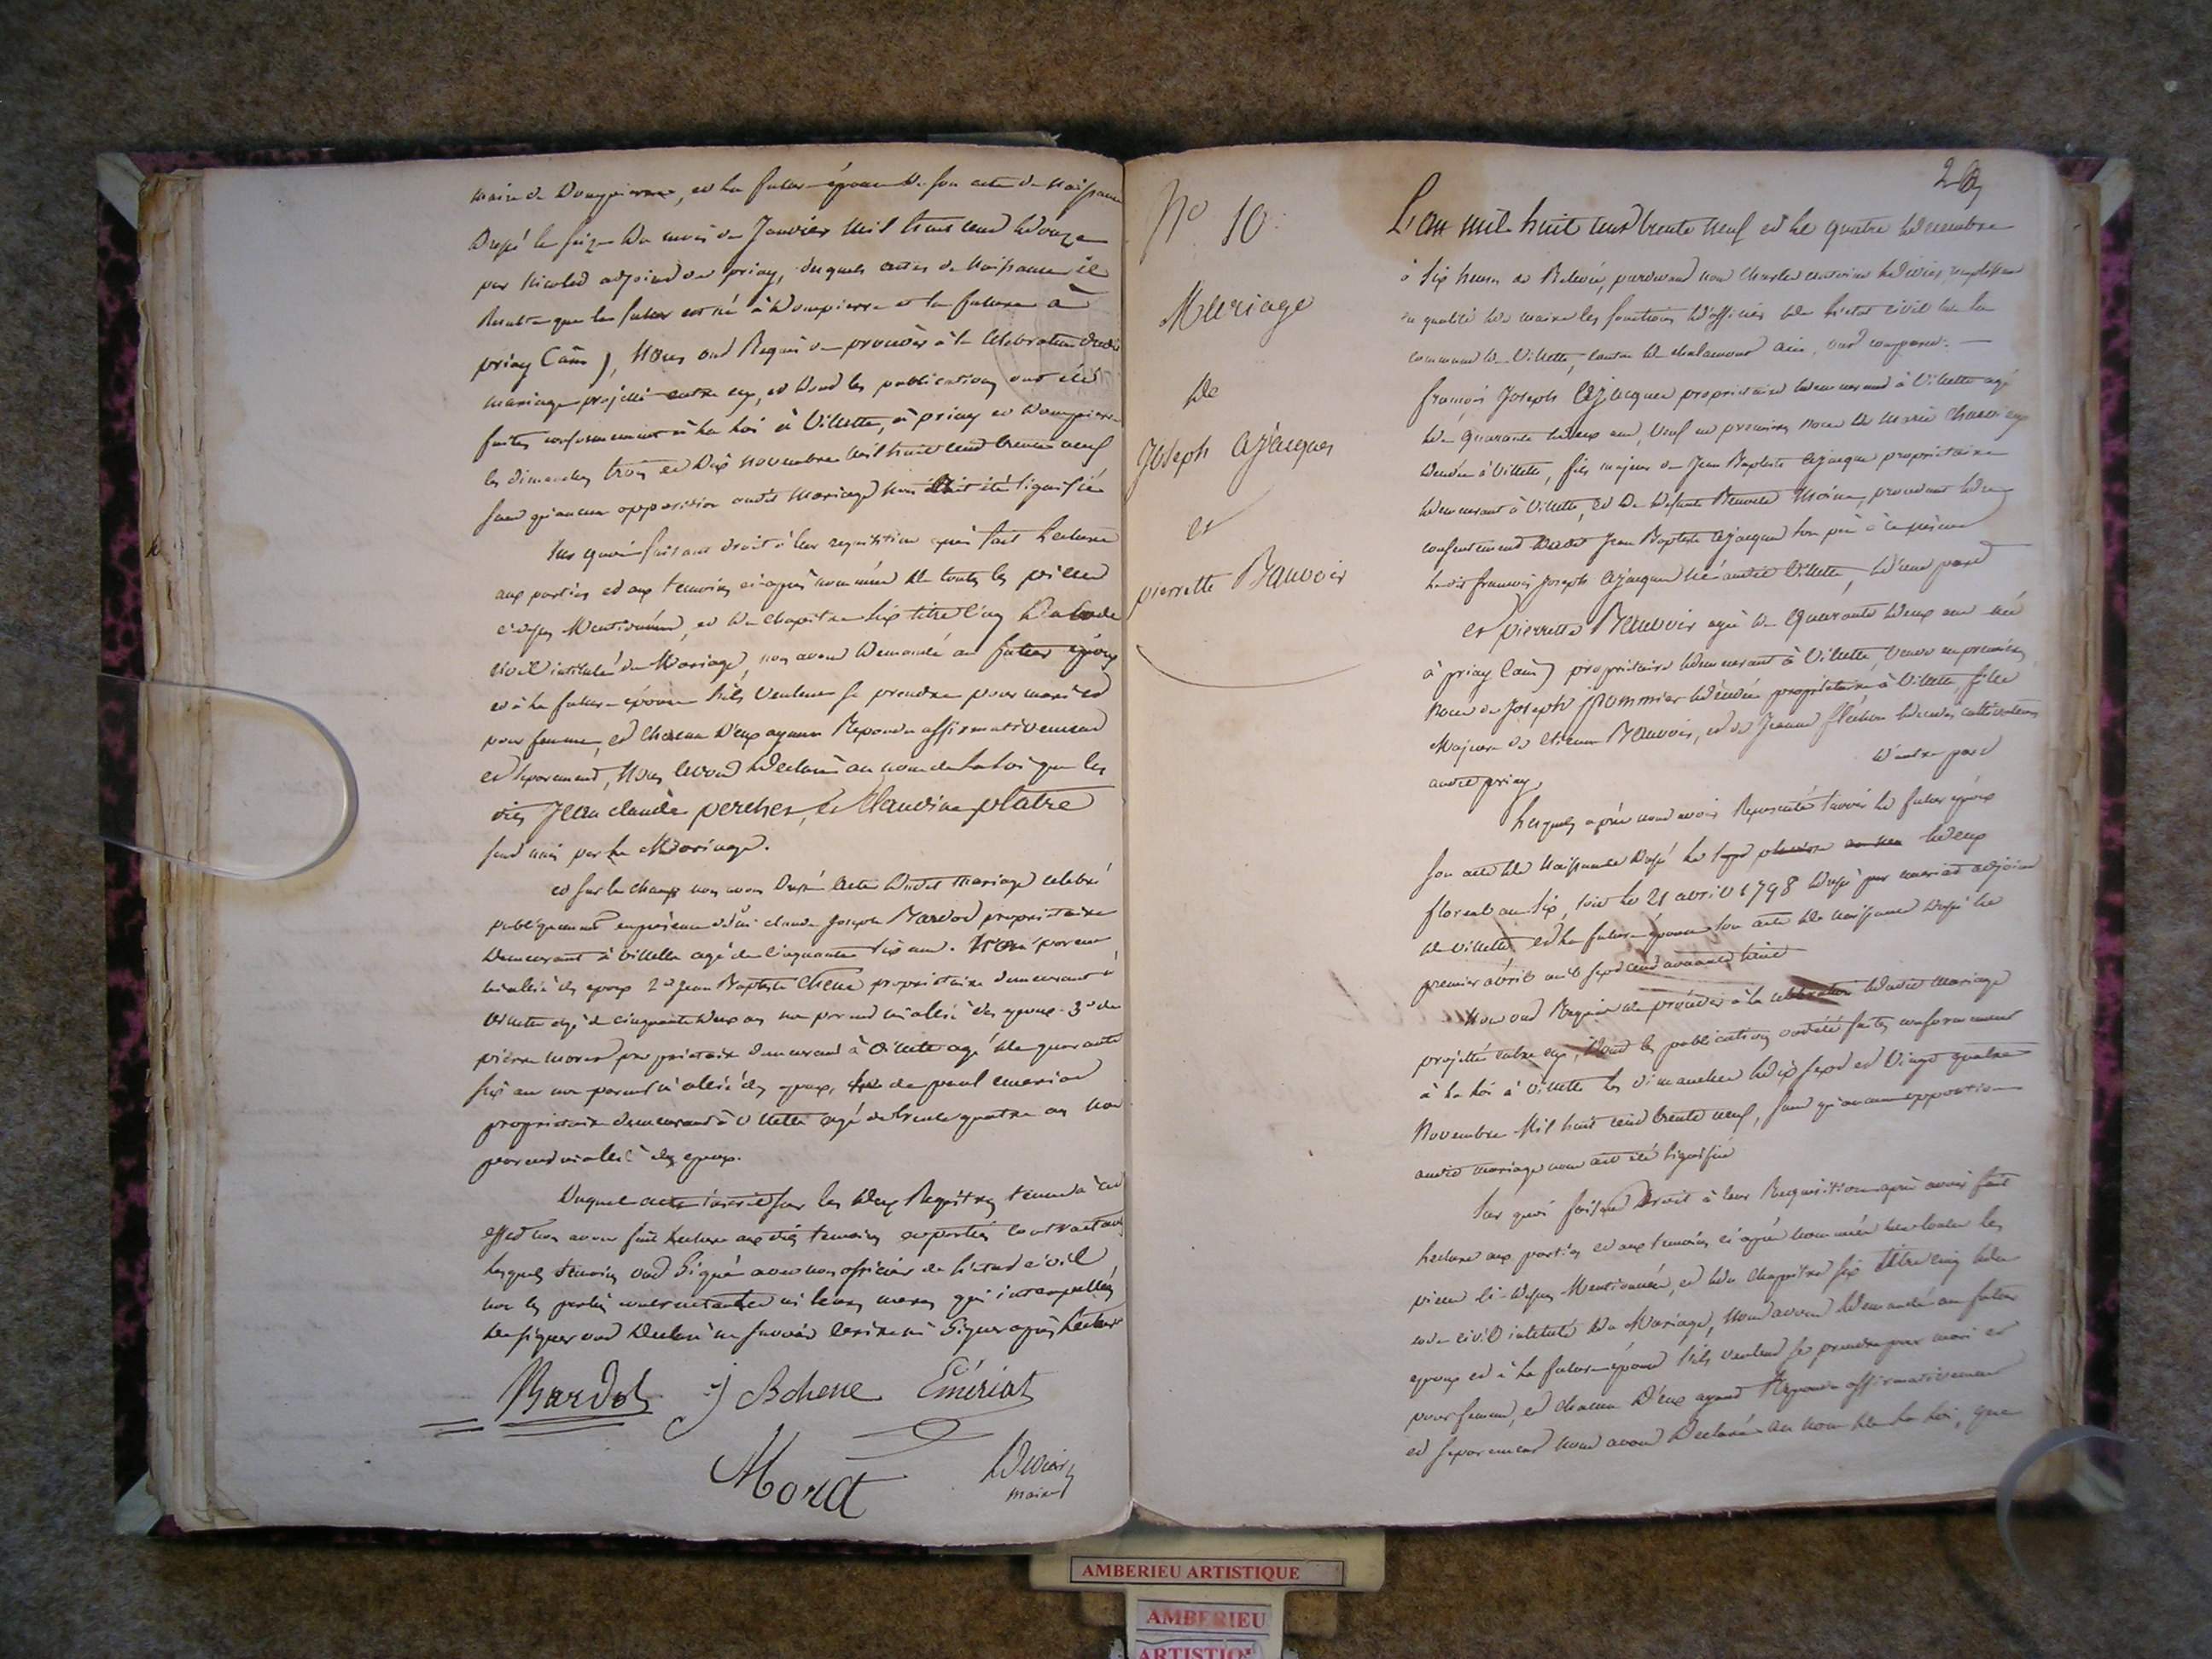 maire de Dompierre, et la future épouse de son acte de naissance
Dressé le seize du mois de Janvier mil huit cent douze
par Nicolas adjoint de priay, desquels actes de naissance il
Resulte que le futur est né à Dompierre et la future à
priay (ain), Nous ont Requis de procéder à la célébration dudit
mariage projetté entre eux, et dont les publications ont été
faites conformément à la loi à Villette, à priay et Dompierre
les dimanches trois et Dix novembre mil huit cent trente neuf
sans qu'aucune opposition audit mariage nous ait été signifiée
Sur quoi faisant droit à leur requisition après fait lecture
aux parties et aux temoins ci-après nommés de toutes les pièces
ci-dessus Mentionnées, et du chapitre six titre cinq du Code
civil intitulé du Mariage, nous avons Demandé au futur époux
et à la future épouse s'ils veulent se prendre pour mari et
pour femme, et chacun D'eux ayant Repondu affirmativement
et séparément, Nous avons Declaré au nom de la loi que les
dits Jean claude percher, et Claudine platre
sont unis par le Mariage.
et sur le champ nous avons Dressé Acte dudit Mariage célébré
publiquement en présence de claude Joseph Bardot propriétaire
Demeurant à Villette agé de cinquante six ans. Non parent
ni allié des epoux 2° Jean Baptiste Chene propriétaire demeurant à
Villette agé de cinquante deux ans non parent ni allié des epoux. 3° de
pierre morat propriétaire demeurant à Villette agé de quarante
six ans non parent ni allié des epoux, de paul emeriat
propriétaire demeurant à Villette agé de trente quatre ans non
parent ni allié des epoux.
Duquel acte inscrit sur les deux Registres tenus à cet
effet nous avons fait lecture aux dits temoins et parties contractantes
lesquels temoins ont Signé avec nous officier de l'état civil
non les parties contractantes ni leurs meres qui interpellés
de signer ont Declaré ne savoir écrire ni Signer après lecture
Bardot J B chene Emeriat
Morat
maire
29
N° 10.
Mariage
de
Joseph Ajacques
et
pierrette Bauvoir
L'an mil huit cent trente neuf et le quatre decembre
à six heures de Relevée, pardevant nous Charles antoine remplissant
en qualité de maire les fonctions d'officier de l'état civil de la
commune de Villette, canton de chalamont ain, ont comparu. —
françois Joseph Ajacques propriétaire demeurant à Villette agé
de quarante deux ans, Veuf en premières noces de Marie
décédée à Villette, fils majeur de Jean Baptiste Ajacques propriétaire
demeurant à Villette, et de defunte Moine, procédant du
consentement dudit Jean Baptiste Ajacques son père à ce présent
ledit françois Joseph Ajacques né audit Villette, d'une part
et pierrette Bauvoir agée de Quarante deux ans née
à priay (ain) propriétaire demeurant à Villette, veuve en premières
noces de Joseph pommier décédé propriétaire à Villette, fille
Majeure de etienne Bauvoir, et de Jeanne décédés cultivateurs
audit priay, d'autre part
Lesquels après nous avoir Représenté savoir le futur époux
son acte de Naissance Dressé le deux
floreal an six, soit le 21 avril 1798 dressé par emeriat adjoint
de villette et la future épouse son acte de naissance dressé le
premier avril mil sept cent
Nous ont Requis de procéder à la célébration dudit Mariage
projetté entre eux, Dont les publications ont été faites conformément
à la loi à Villette les dimanches dix sept et Vingt quatre
Novembre Mil huit cent trente neuf, sans qu'aucune opposition
audit mariage nous ait été signifiée
Sur quoi faisant Droit à leur Requisition après avoir fait
lecture aux parties et aux temoins ci après nommés de toutes les
pièces ci-dessus Mentionnées, et du chapitre six titre cinq du
code civil intitulé du Mariage, Nous avons Demandé au futur
epoux et à la future épouse s'ils veulent se prendre pour mari et
pour femme, et chacun D'eux ayant Repondu affirmativement
et séparément nous avons Declaré au nom de la loi, que
AMBERIEU ARTISTIQUE
AMBERIEU
ARTISTIQUE